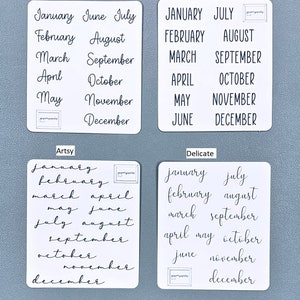 January June July
February August
March September
April October
May November
December
JANUARY JULY
FEBRUARY AUGUST
MARCH SEPTEMBER
APRIL OCTOBER
MAY NOVEMBER
JUNE DECEMBER
Artsy
january
february
march april
may june
july august
september
october
november
december
Delicate
january july
february august
march september
april may october
june november
december